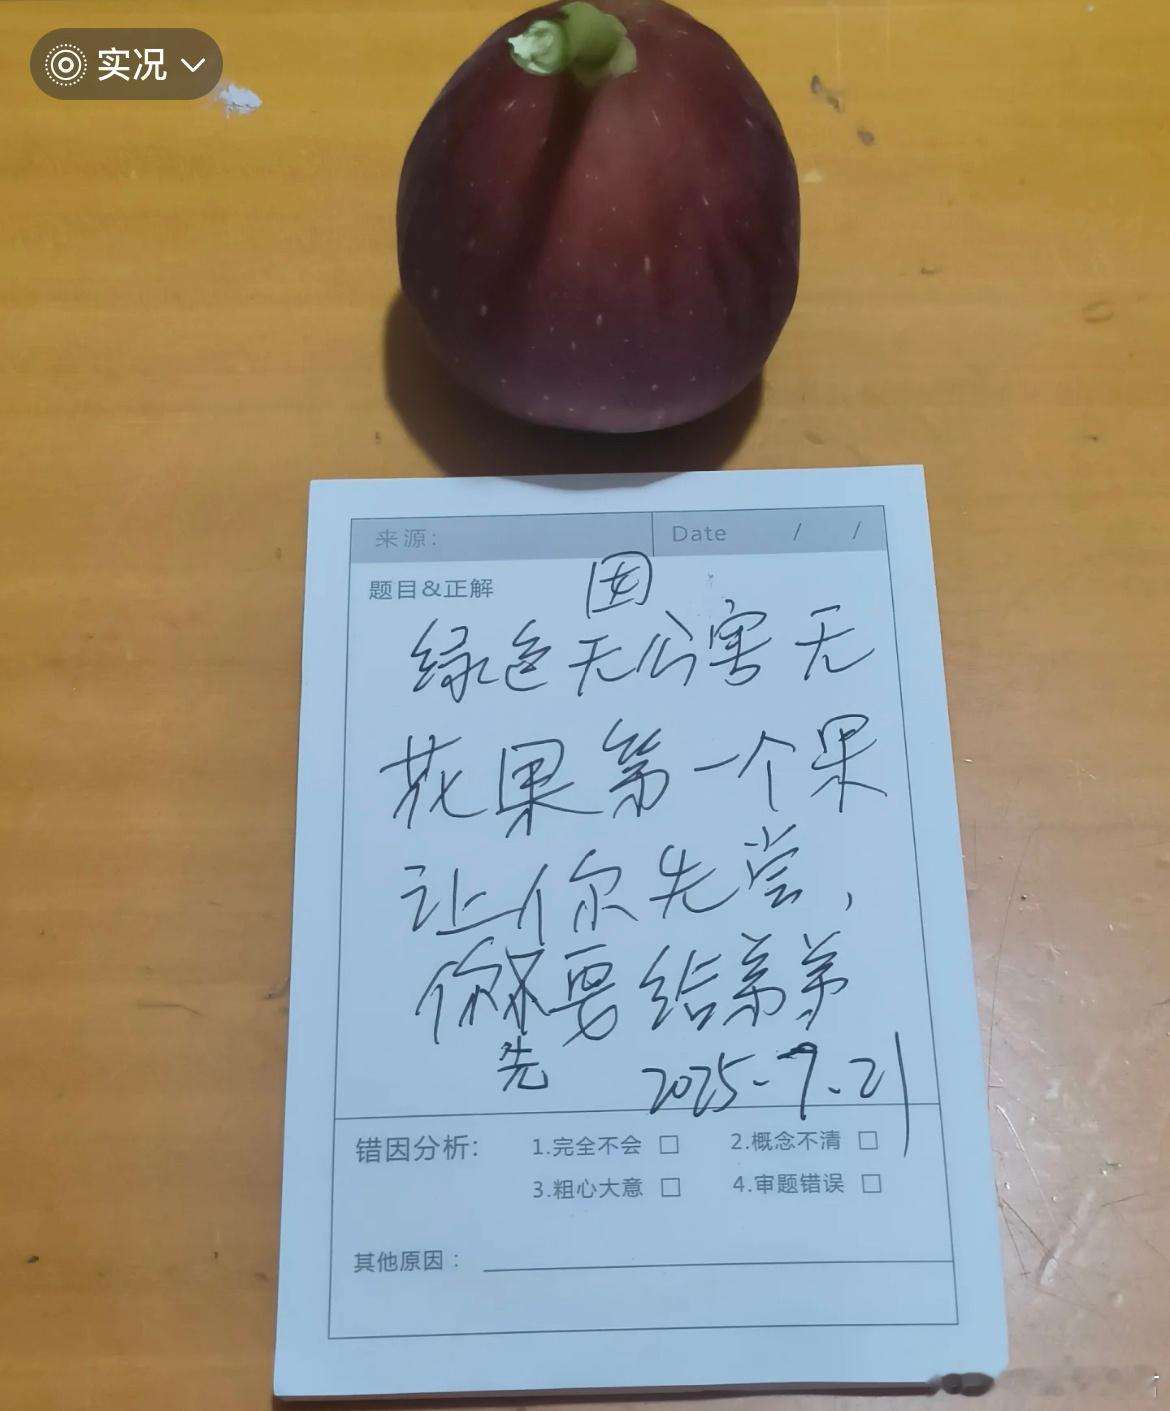 实况
来源:
Date / /
题目&正解
囡
绿色无公害无
花果第一个果
让你先尝，
你不要给弟弟
先
2025-7.21
错因分析:
1.完全不会 □ 2.概念不清 □
3.粗心大意 □ 4.审题错误 □
其他原因：